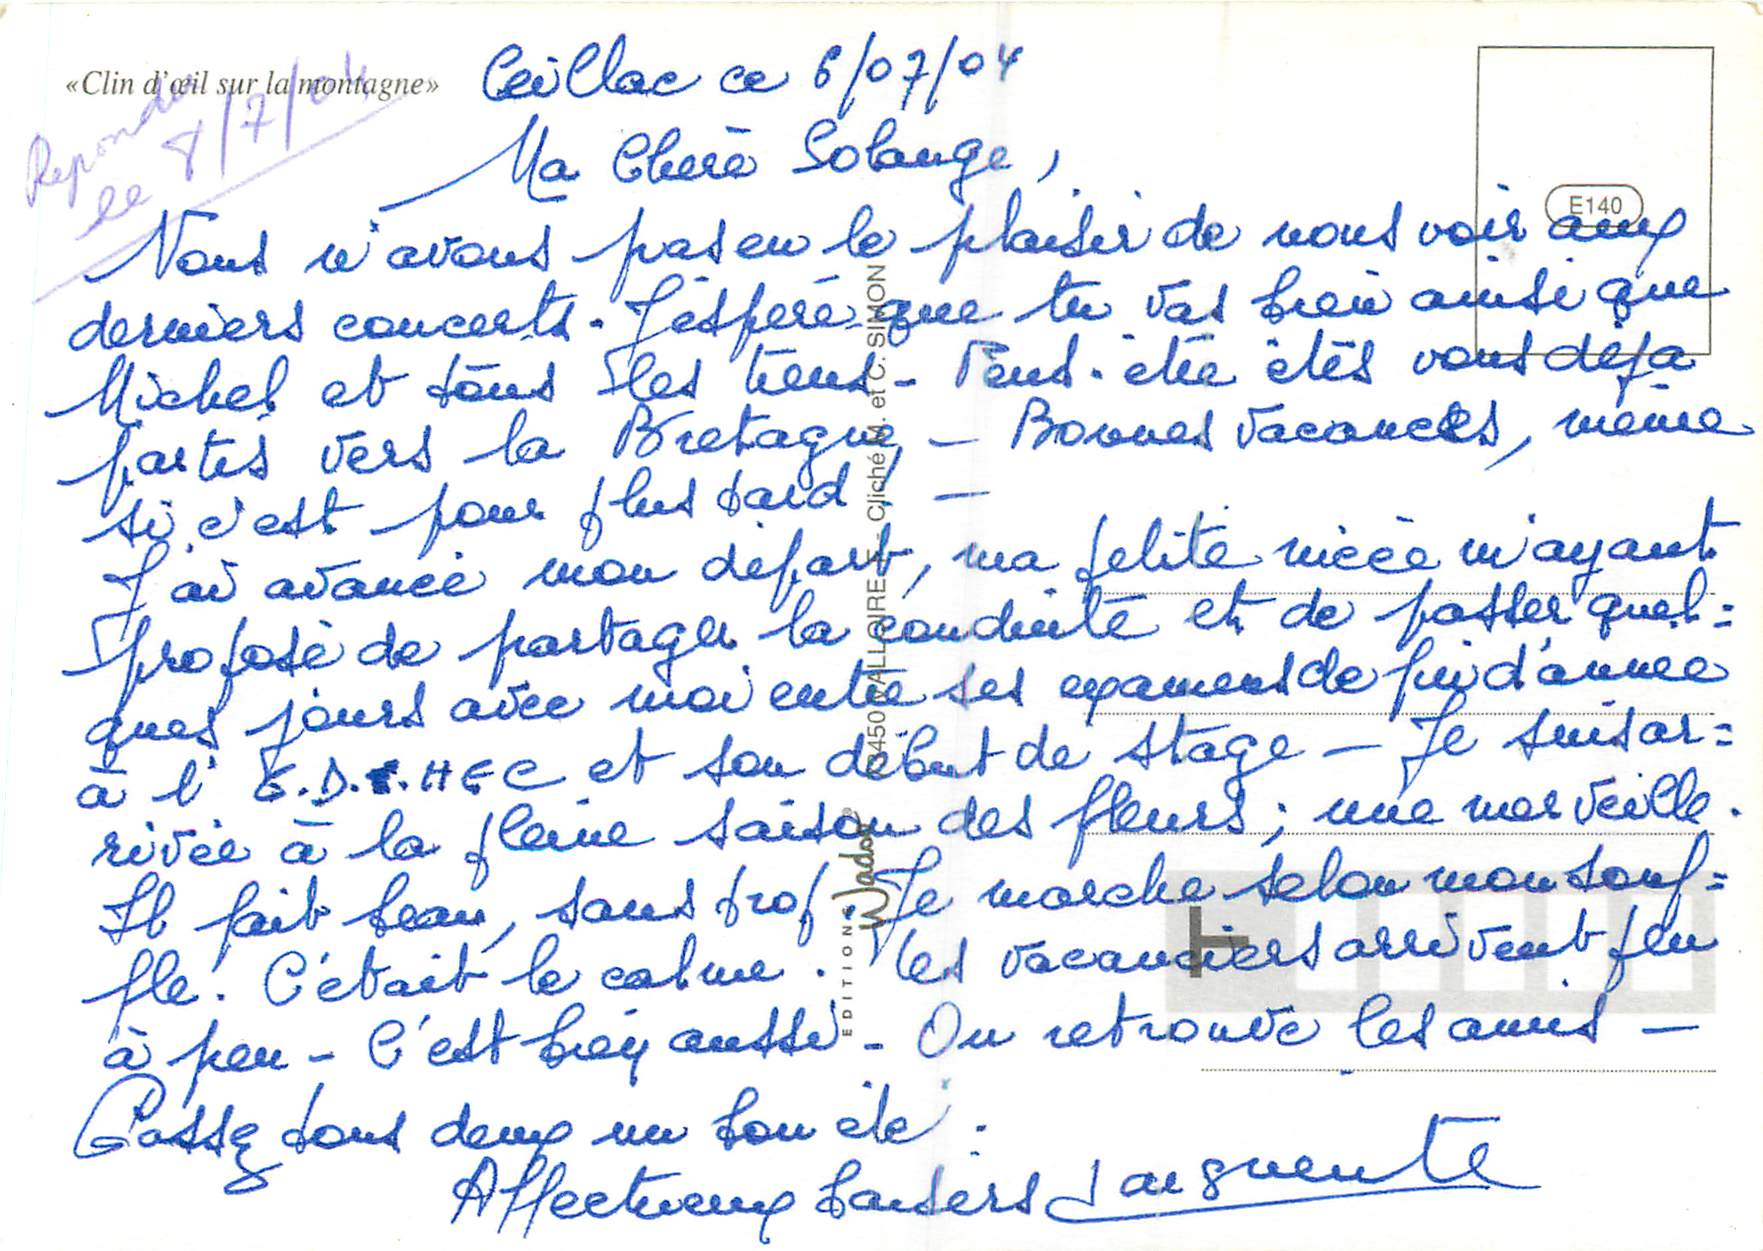 «Clin d'œil sur la montagne»
Répondu
le 8/7/04
Ceillac ce 6/07/04
Ma Chère Solange,
Nous n'avons pas eu le plaisir de nous voir aux
derniers concerts. J'espère que tu vas bien ainsi que
Michel et tous les tiens - Peut-être êtes vous déjà
partis vers la Bretagne - Bonnes vacances, même
si c'est pour plus tard ! -
J'ai avancé mon départ, ma petite nièce m'ayant
proposé de partager la conduite et de passer quel=
ques jours avec moi entre ses examens de fin d'année
à l'E.D.HEC et son début de stage - Je suis ar=
rivée à la pleine saison des fleurs ; une merveille.
Il fait beau, sans trop. Je marche selon mon souf=
fle. C'était le calme. Les vacanciers arrivent peu
à peu - C'est bien aussi - On retrouve les amis -
Passez tous deux un bon été.
Affectueux baisers Marguerite
E140
EDITIONS Wador
VALLOIRE - Cliché M. et C. SIMON
T